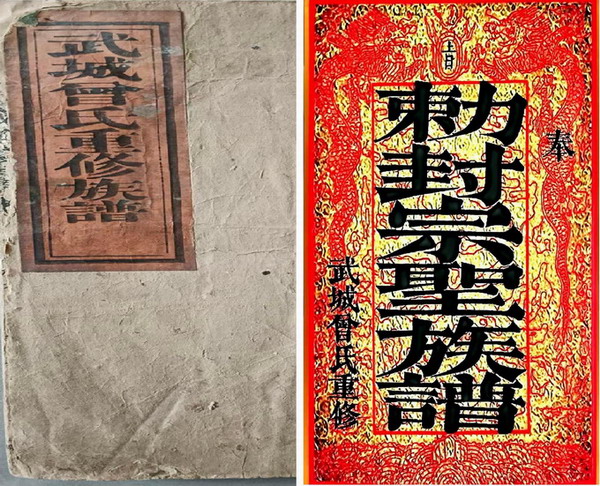 武城曾氏重修族譜
上日
奉
勅封宗聖族譜
武城曾氏重修